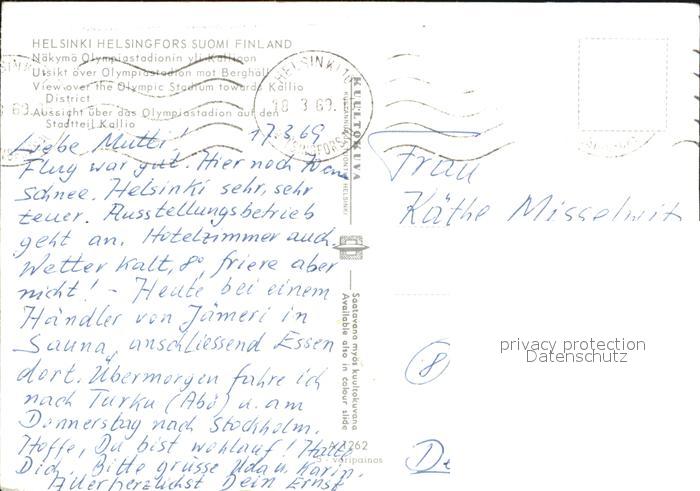 HELSINKI HELSINGFORS SUOMI FINLAND
Näkymä Olympiastadionin yli Kallioon
Utsikt över Olympiastadion mot Berghäll
View over the Olympic Stadium towards Kallio
District
Aussicht über das Olympiastadion auf den
Stadtteil Kallio
HELSINKI
18 3 69
HELSINGFORS
17.3.69
Liebe Mutti!
Flug war gut. Hier noch
Schnee. Helsinki sehr, sehr
teuer. Ausstellungsbetrieb
geht an. Hotelzimmer auch.
Wetter kalt, 8°, friere aber
nicht! - Heute bei einem
Händler von Jämeri in
Sauna, anschliessend Essen
dort. Übermorgen fahre ich
nach Turku (Åbo) u. am
Donnerstag nach Stockholm.
Hoffe, Du bist wohlauf! Halte
Dich. Bitte grüsse Uda u. Karin.
Allerherzlichst Dein Ernst
KUULTOKUVA
Saatavana myös kuultokuvana
Available also in colour slide
5 - väripainos
Frau
Käthe Misselwit
privacy protection
Datenschutz
8